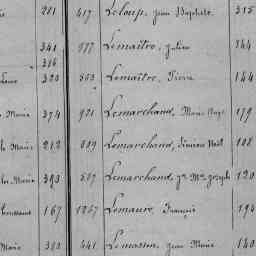 281 417 Leloup, Jean Baptiste 315
341 977 Lemaître, Julien 344
316
320 553 Lemaître, Pierre 144
Marie 374 921 Lemarchand, Marie Ange 179
Marie 212 889 Lemarchand, Vincent Noël 108
Marie 393 507 Lemarchand, Joseph 120
Toussaint 167 1267 Lemaure, François 194
Marie 441 Lemasson, Jean Marie 140